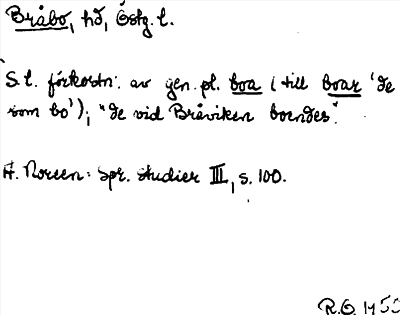 Bråbo, hd, Östg. l.
S. l. förkortn. av gen. pl. boa (till boar 'de
som bo'); "de vid Bråviken boendes".
A. Noreen: Spr. studier III, s. 100.
R.O. 1955